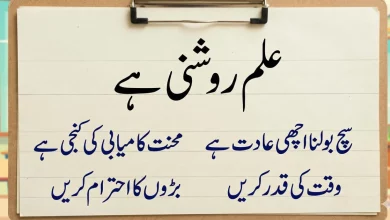 علم روشنی ہے
سچ بولنا اچھی عادت ہے محنت کامیابی کی کنجی ہے
وقت کی قدر کریں بڑوں کا احترام کریں